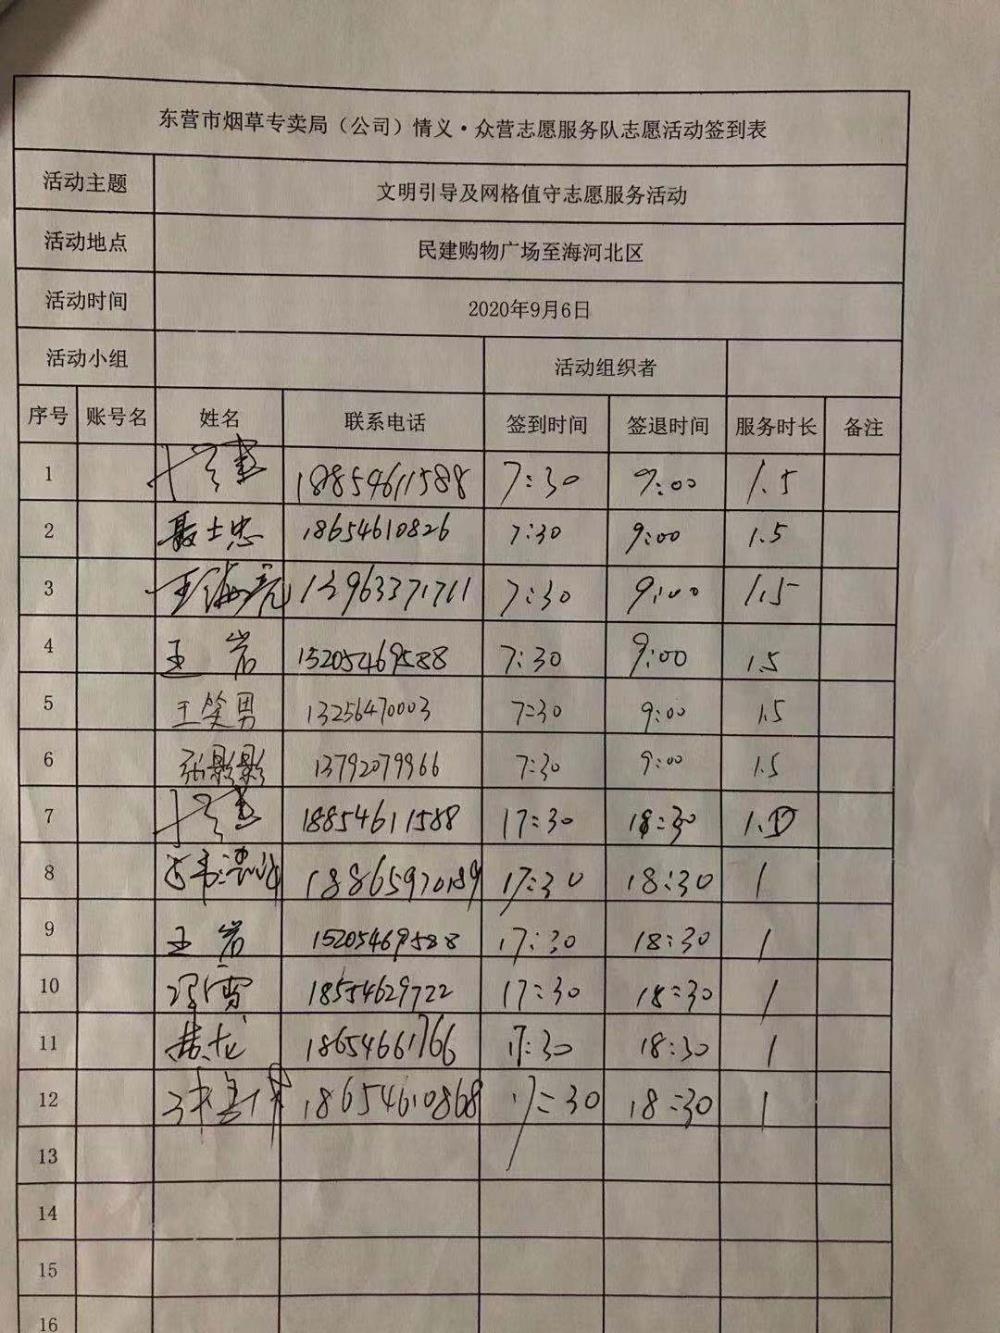 东营市烟草专卖局（公司）情义·众营志愿服务队志愿活动签到表
活动主题 文明引导及网格值守志愿服务活动
活动地点 民建购物广场至海河北区
活动时间 2020年9月6日
活动小组 活动组织者
序号 账号名 姓名 联系电话 签到时间 签退时间 服务时长 备注
1 18854611588 7:30 9:00 1.5
2 聂士忠 18654610826 7:30 9:00 1.5
3 王海亮 13963371711 7:30 9:00 1.5
4 王岩 15205469588 7:30 9:00 1.5
5 王笑男 13256470003 7:30 9:00 1.5
6 张影影 13792079966 7:30 9:00 1.5
7 18854611588 17:30 18:30
8 18865970189 17:30 18:30 1
9 王岩 15205469588 17:30 18:30 1
10 18554629722 17:30 18:30 1
11 18654661766 17:30 18:30 1
12 18654610868 17:30 18:30 1
13
14
15
16